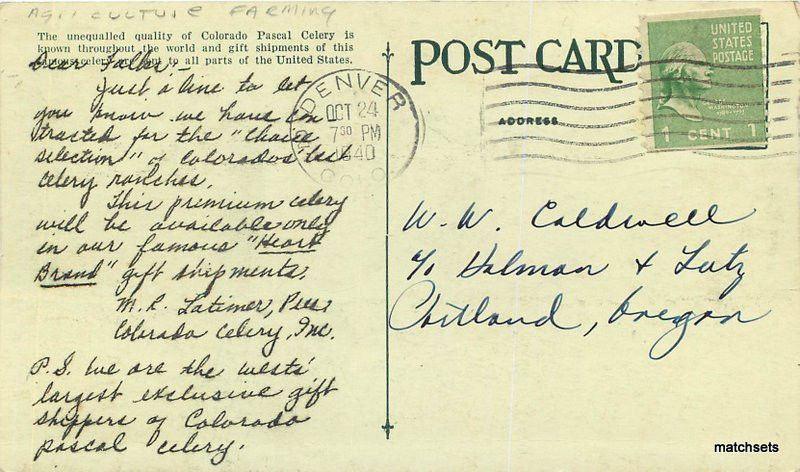 AGRICULTURE FARMING
The unequalled quality of Colorado Pascal Celery is
known throughout the world and gift shipments of this
famous celery are sent to all parts of the United States.
Dear Folks:-
Just a line to let
you know we have con
tracted for the "choice
selection" of Colorados
celery ranches.
This premium celery
will be available only
in our famous "Heart
Brand" gift shipments.
M. R. Latimer, Pres.
Colorado Celery, Inc.
P.S. We are the wests'
largest exclusive gift
shippers of Colorado
pascal celery.
POST CARD
ADDRESS
DENVER
OCT 24
7 30 PM
1940
COLO
UNITED
STATES
POSTAGE
WASHINGTON
1 CENT 1
W. W. Caldwell
c/o Holman & Lutz
Portland, Oregon
matchsets